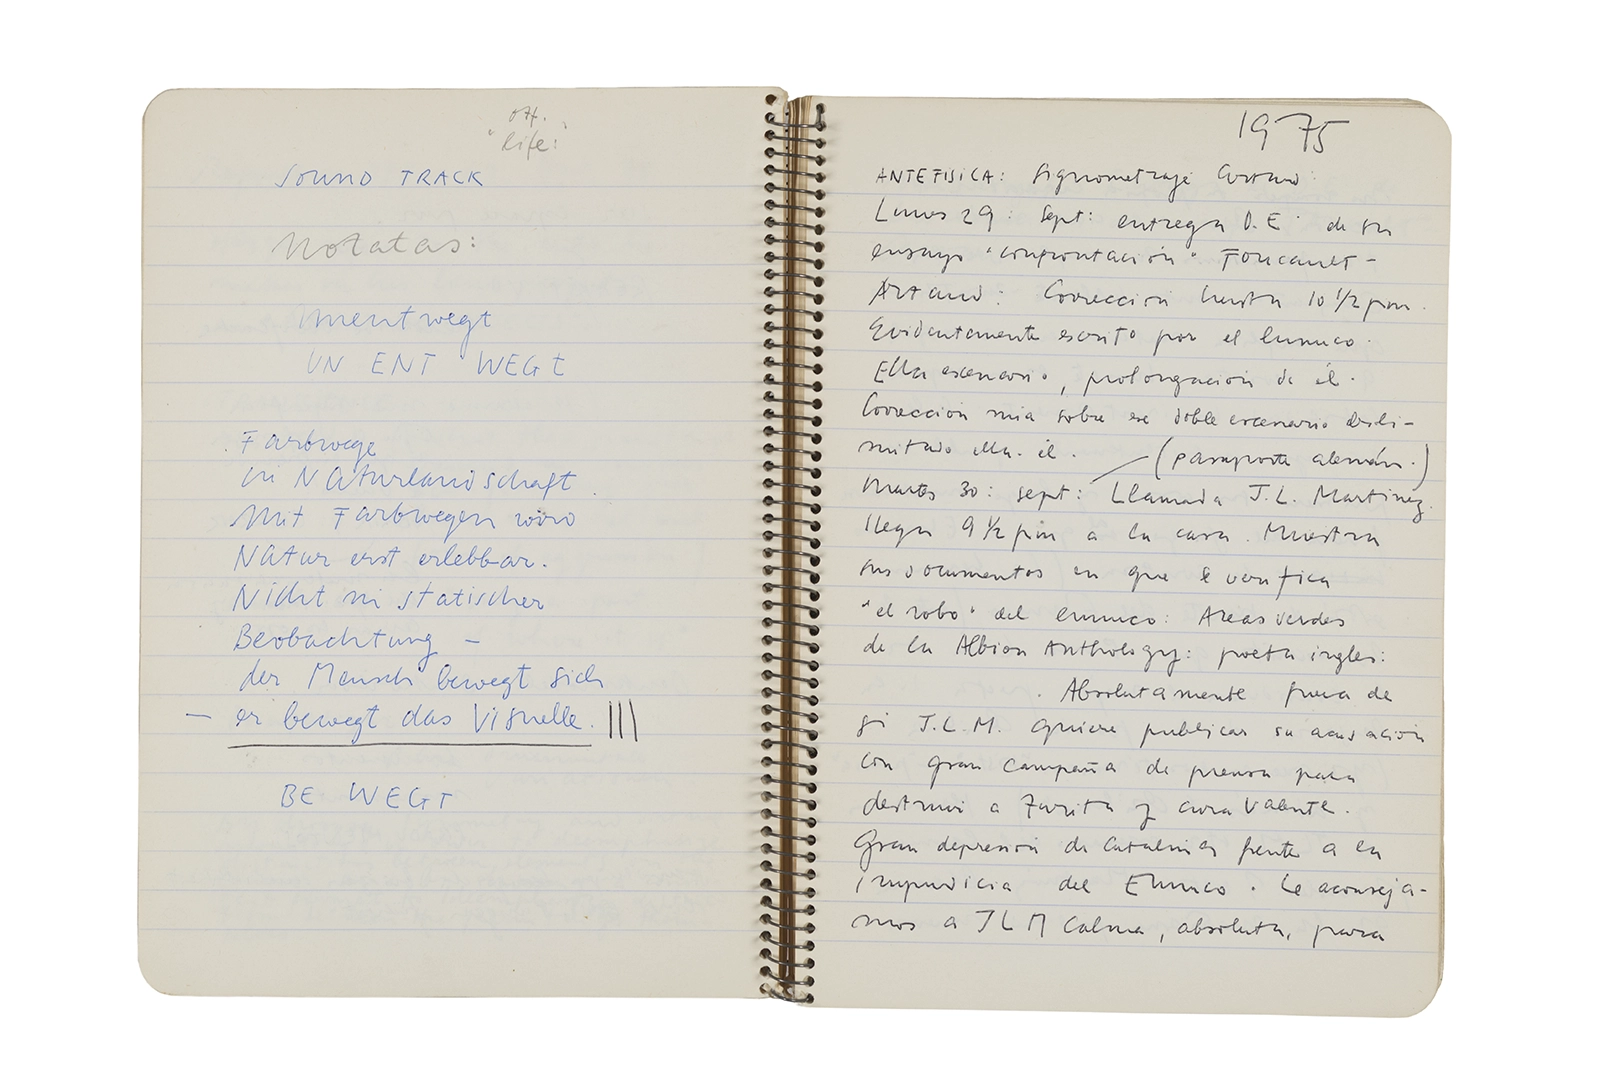 off.
"life"
SOUND TRACK
Notatas:
Unentwegt
UN ENT WEGT
Farbwege
in Naturlandschaft.
Mit Farbwegen wird
Natur erst erlebbar.
Nicht in statischer
Beobachtung –
der Mensch bewegt sich
– er bewegt das Visuelle. |||
BE WEGT
1975
ANTEFISICA: Signometraje
Lunes 29: Sept: entrega D.E. de su
ensayo "confrontación" Foucault –
Artaud: Corrección hasta 10 1/2 pm.
Evidentemente escrito por el Eunuco.
Ella escenario, prolongación de él.
Corrección mía sobre ese doble escenario desli-
mitado ella. él.
(pasaporte alemán.)
Martes 30: sept: Llamada J.L. Martínez.
llega 9 1/2 pm a la casa. Muestra
sus documentos en que se verifica
"el robo" del eunuco: Areas verdes
de la Albion Anthology: poeta inglés:
. Absolutamente fuera de
sí J.L.M. quiere publicar su acusación
con gran campaña de prensa para
destruir a Zurita y cura Valente.
Gran depresión de Catalina frente a la
impudicia del Eunuco. Le aconseja-
mos a JLM calma, absoluta, para